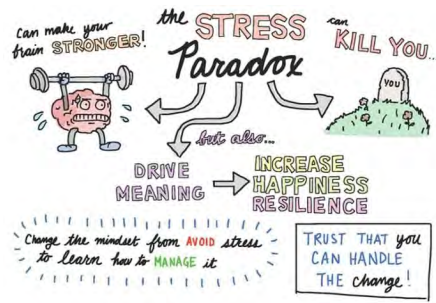 the STRESS
Paradox
can make your
brain STRONGER!
can
KILL YOU...
YOU
but also...
DRIVE
MEANING
INCREASE
HAPPINESS
RESILIENCE
Change the mindset from AVOID stress
to learn how to MANAGE it
TRUST THAT you
CAN HANDLE
THE change!